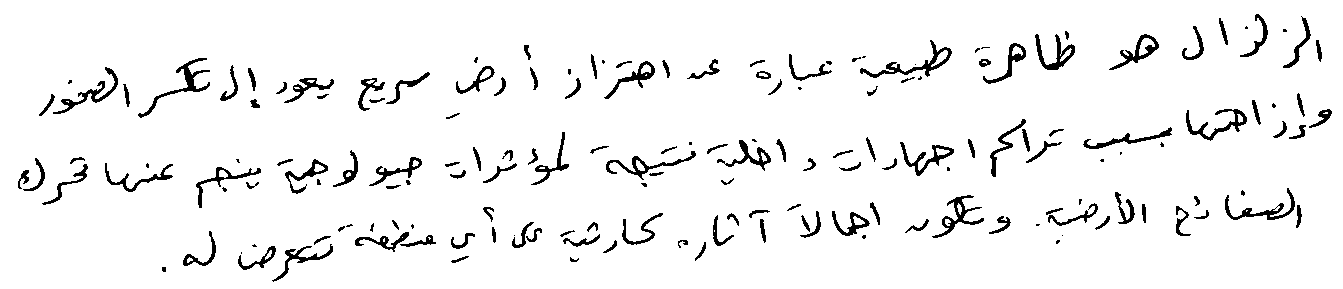 الزلزال هو ظاهرة طبيعية عبارة عن اهتزاز أرضي سريع يعود إلى تكسر الصخور
وإزاحتها بسبب تراكم اجهادات داخلية نتيجة لمؤثرات جيولوجية ينجم عنها تحرك
الصفائح الأرضية. وتكون اجمالاً آثاره كارثية على أي منطقة تتعرض له.